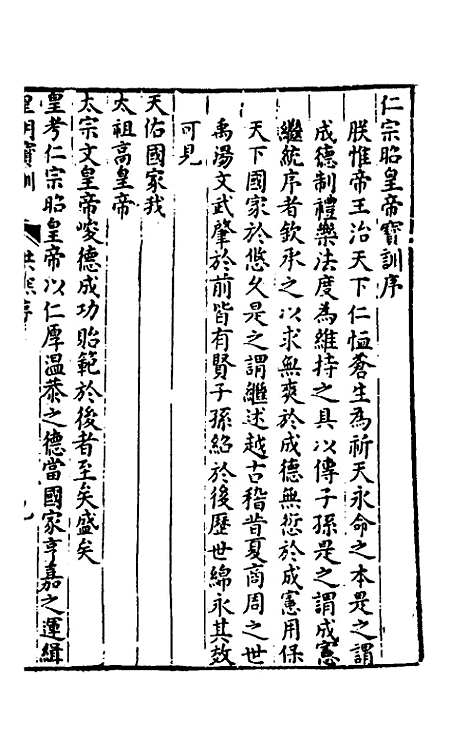 仁宗昭皇帝寶訓序
朕惟帝王治天下仁恒蒼生為祈天永命之本是之謂
成德制禮樂法度為維持之具以傳子孫是之謂成憲
繼統序者欽承之以求無爽於成德無愆於成憲用保
天下國家於悠久是之謂繼述越古稽昔夏商周之世
禹湯文武肇於前皆有賢子孫紹於後歷世綿永其效
可見
天佑國家我
太祖高皇帝
太宗文皇帝峻德成功貽範於後者至矣盛矣
皇考仁宗昭皇帝以仁厚溫恭之德當國家亨嘉之運緝
皇明寶訓